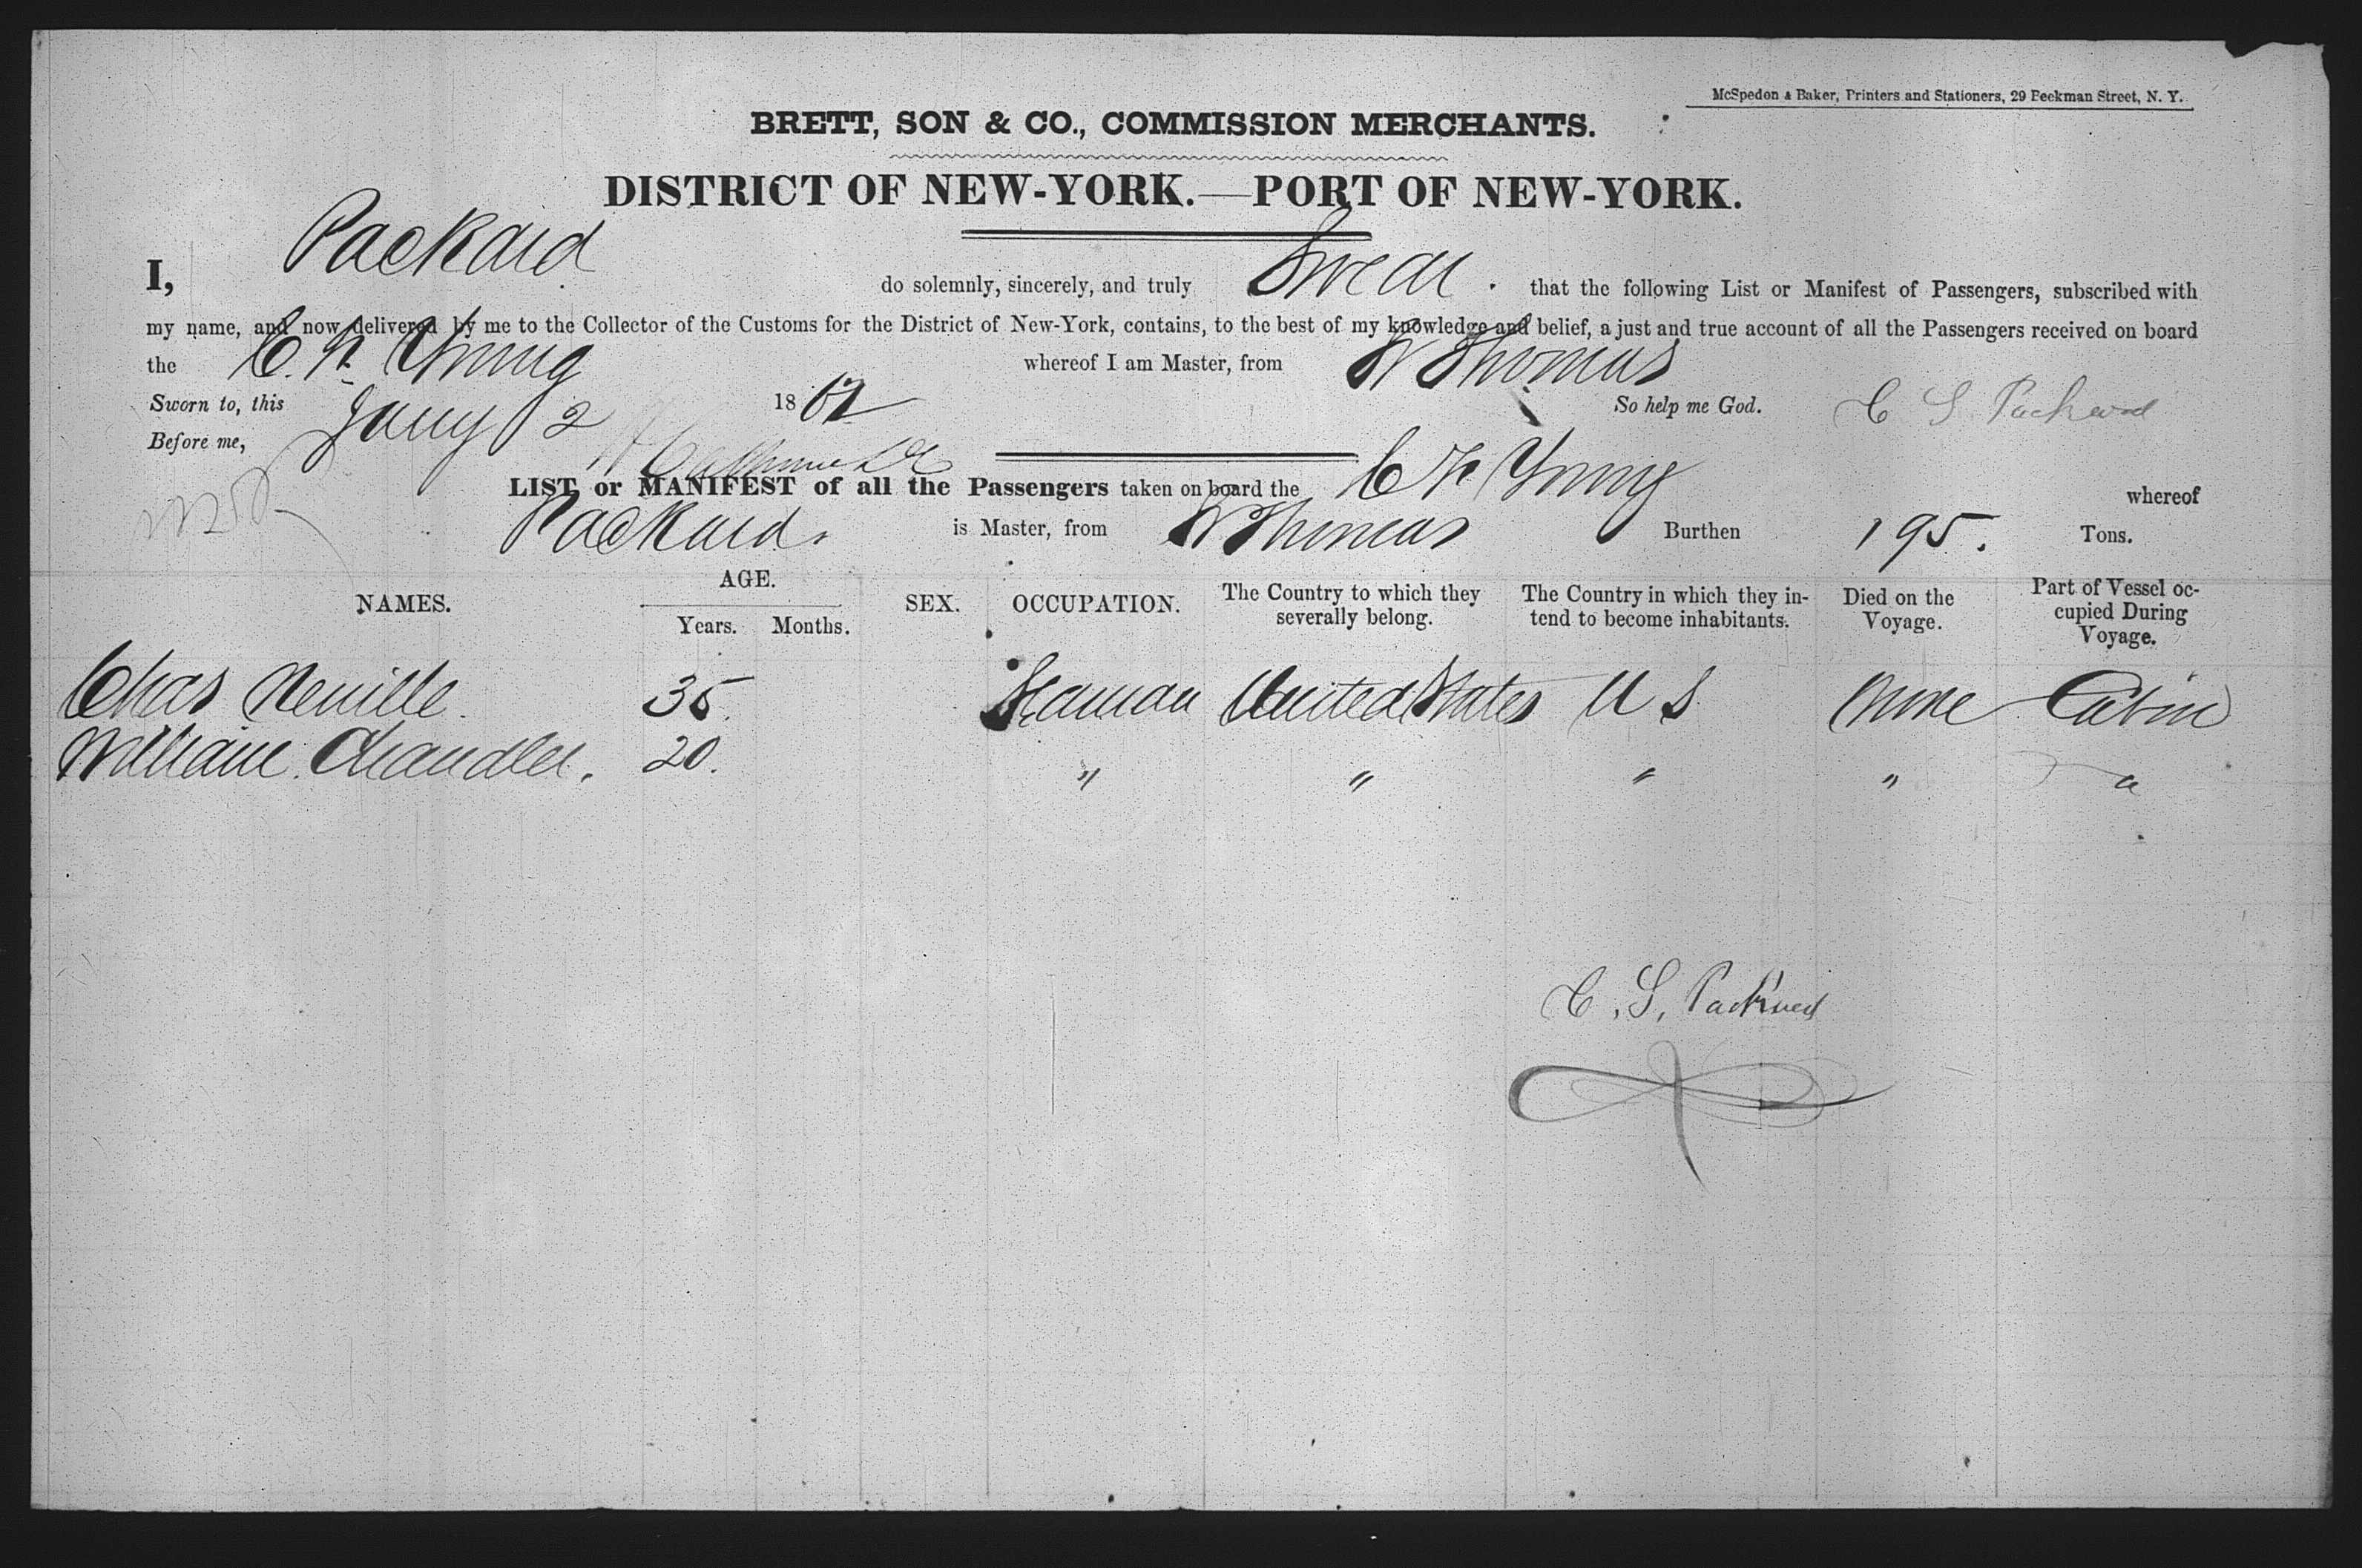 McSpedon & Baker, Printers and Stationers, 29 Beekman Street, N. Y.
BRETT, SON & CO., COMMISSION MERCHANTS.
DISTRICT OF NEW-YORK.—PORT OF NEW-YORK.
I, Packard do solemnly, sincerely, and truly Swear. that the following List or Manifest of Passengers, subscribed with
my name, and now delivered by me to the Collector of the Customs for the District of New-York, contains, to the best of my knowledge and belief, a just and true account of all the Passengers received on board
the C. F. Young whereof I am Master, from St Thomas
Sworn to, this Jany 2 1862 So help me God. C S Packard
Before me,
LIST or MANIFEST of all the Passengers taken on board the C F Young whereof
Packard. is Master, from St Thomas Burthen 195. Tons.
NAMES. AGE. Years. Months. SEX. OCCUPATION. The Country to which they severally belong. The Country in which they intend to become inhabitants. Died on the Voyage. Part of Vessel occupied During Voyage.
Chas Neville. 35. Seaman United States U S None Cabin
William Chandler. 20. " " " " "
C. S. Packard